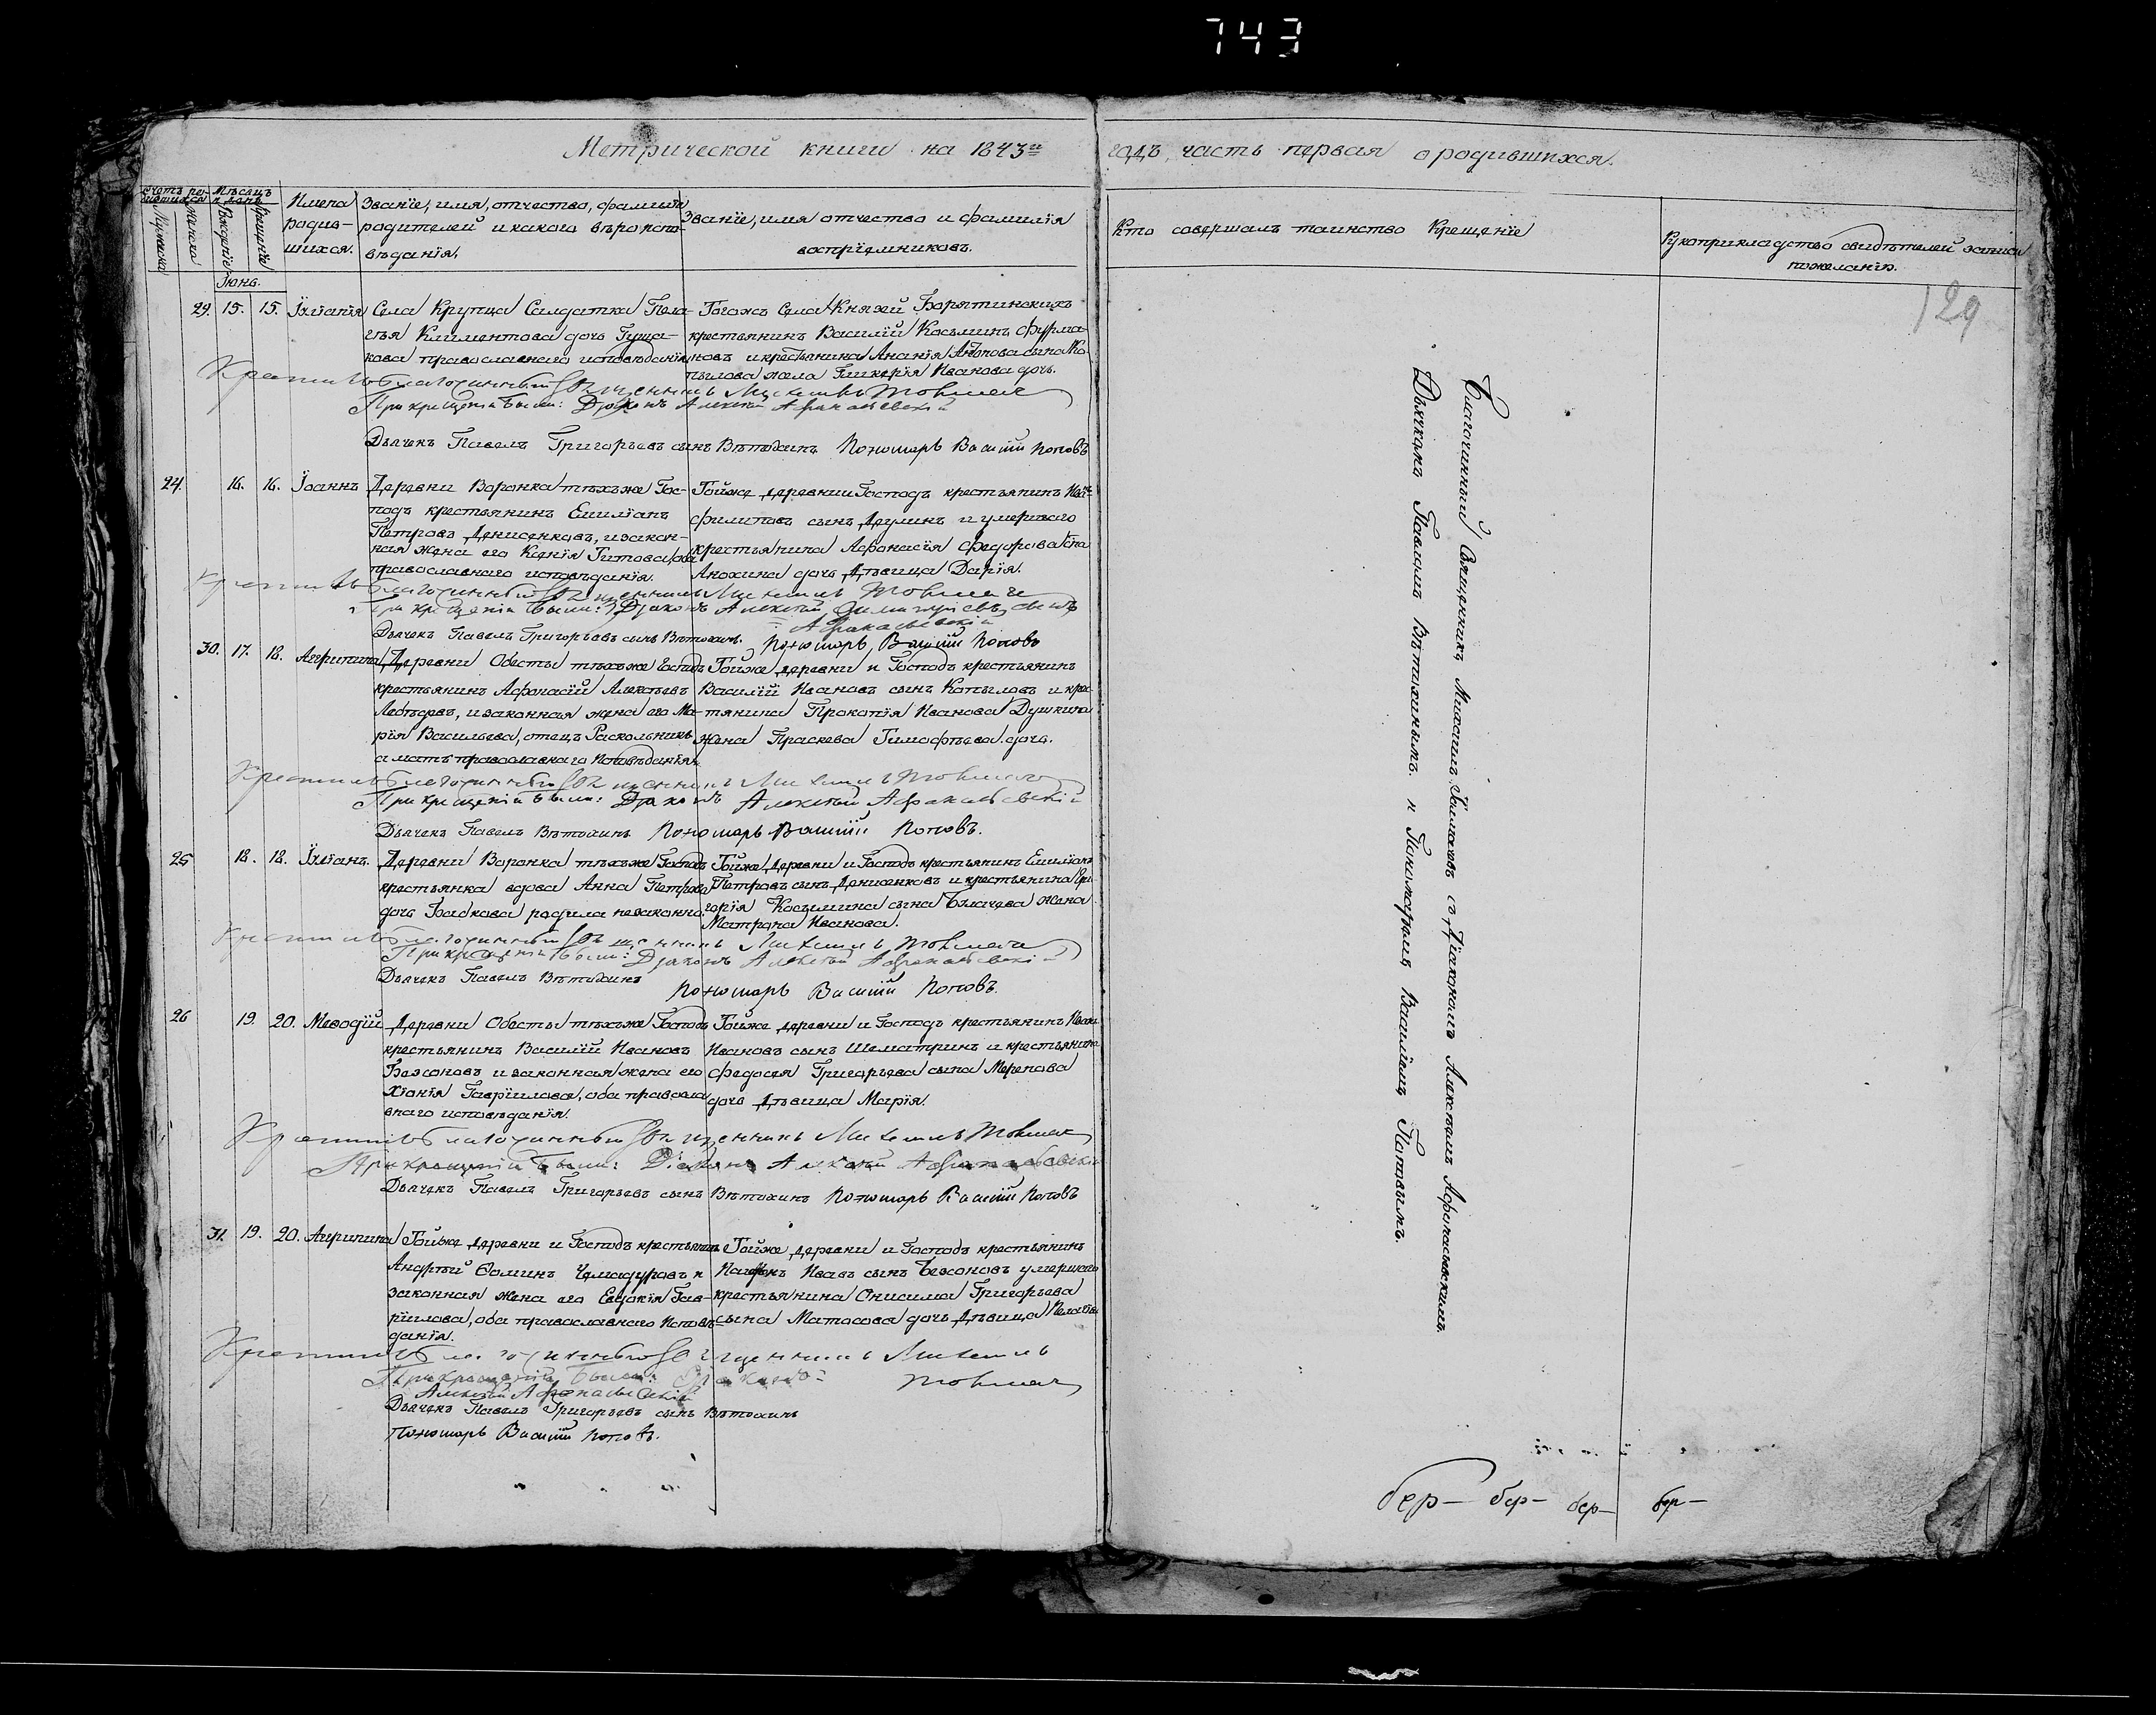 743
Метрической книги на 1843й годъ, часть первая о родившихся.
Счетъ родившихся
Мужеска
Женска
Мѣсяцъ и день
Рожденіе
Крещеніе
Имена родив-
шихся.
Званіе, имя, отчество, фамилія
родителей и какого вѣроиспо-
вѣданія.
Званіе, имя отчество и фамилія
воспріемниковъ.
Кто совершалъ таинство Крещеніе
Рукоприкладство свидѣтелей записи
по желанію.
129
Іюнь.
29. 15. 15. Іуліанія
Села Крупца Салдатка Пела-
гѣя Климентова дочь Гуща-
кова православнаго исповѣданія
Тогожъ Села Князей Борятинскихъ
крестьянинъ Василій Косьминъ Фурма-
новъ и крестьянина Ананія Антонова сына Ко-
пылова жена Гликерія Иванова дочь.
Крестилъ благочинный Священникъ Михаилъ
При крещеніи были: Діаконъ Алексѣй Афанасьевскій
Дьячекъ Павелъ Григорьевъ сынъ Вѣтохинъ Пономарь Василій Поповъ
24. 16. 16. Іоаннъ
Деревни Воронка тѣхъже Гос-
подъ крестьянинъ Емиліанъ
Петровъ Денисенковъ, и закон-
ная жена его Ксенія Титова, оба
православнаго исповѣданія.
Тойже деревни Господъ крестьянинъ Иванъ
Филиповъ сынъ Дѣулинъ и умершаго
крестьянина Афонасія Федорова сына
Анохина дочь Дѣвица Дарія.
Крестилъ благочинный Священникъ Михаилъ
При крещеніи были: Діаконъ Алексѣй Димитріевъ сынъ
Афанасьевскій
Дьячекъ Павелъ Григорьевъ сынъ Вѣтохинъ. Пономарь Василій Поповъ
30. 17. 18. Агрипина
Деревни Обесты тѣхъже Господъ
крестьянинъ Афонасій Алексѣевъ
Лебѣдевъ, и законная жена его Ма-
рія Васильева, отецъ Раскольникъ
а мать православнаго Исповѣданія
Тойже деревни и Господъ крестьянинъ
Василій Ивановъ сынъ Копыловъ и крес-
тянина Прокопія Иванова Душкина
жена Праскева Тимофѣева дочь.
Крестилъ благочинный Священникъ Михаилъ
При крещеніи были: Діаконъ Алексѣй Афанасьевскій
Дьячекъ Павелъ Вѣтохинъ Пономарь Василій Поповъ.
25 18. 18. Іуліанъ.
Деревни Воронка тѣхъже Господъ
крестьянка вдова Анна Петрова
дочь родила незаконно.
Тойже Деревни и Господъ крестьянинъ Емиліанъ
Петровъ сынъ Денисенковъ и крестьянина Гри-
горія Косьмина сына жена
Матрона Иванова.
Крестилъ благочинный Священникъ Михаилъ
При крещеніи были: Діаконъ Алексѣй Афанасьевскій
Дьячекъ Павелъ Вѣтохинъ
Пономарь Василій Поповъ.
26 19. 20. Меѳодій
Деревни Обесты тѣхъже Господъ
крестьянинъ Василій Ивановъ
Безсоновъ и законная жена его
Хіонія Гавріилова, оба правосла
внаго исповѣданія.
Тойже деревни и Господъ крестьянинъ Иванъ
Ивановъ сынъ Шематринъ и крестьянина
Федосея Григорьева сына Меренова
дочь Дѣвица Марія.
Крестилъ благочинный Священникъ Михаилъ
При крещеніи были: Діаконъ Алексѣй Афанасьевскій
Дьячекъ Павелъ Григорьевъ сынъ Вѣтохинъ Пономарь Василій Поповъ
31. 19. 20. Агрипина
Тойже деревни и Господъ крестьянинъ
Андрѣй Ѳоминъ Чемадуровъ и
законная жена его Евдокія Гав-
ріилова, оба православнаго Исповѣ-
данія.
Тойже деревни и Господъ крестьянинъ
сынъ Безсоновъ умершаго
крестьянина Онисима Григорьева
сына Матосова дочь Дѣвица Пелагѣя
Крестилъ благочинный Священникъ Михаилъ
При крещеніи были: Діаконъ
Алексѣй Афанасьевскій
Дьячекъ Павелъ Григорьевъ сынъ Вѣтохинъ
Пономарь Василій Поповъ.
Благочинный Священникъ Михаилъ съ Діакономъ Алексѣемъ Афонасьевскимъ.
Дьячкомъ Павломъ Вѣтохинымъ. и Пономаремъ Василіемъ Поповымъ.
бер- бер- бер- бер-